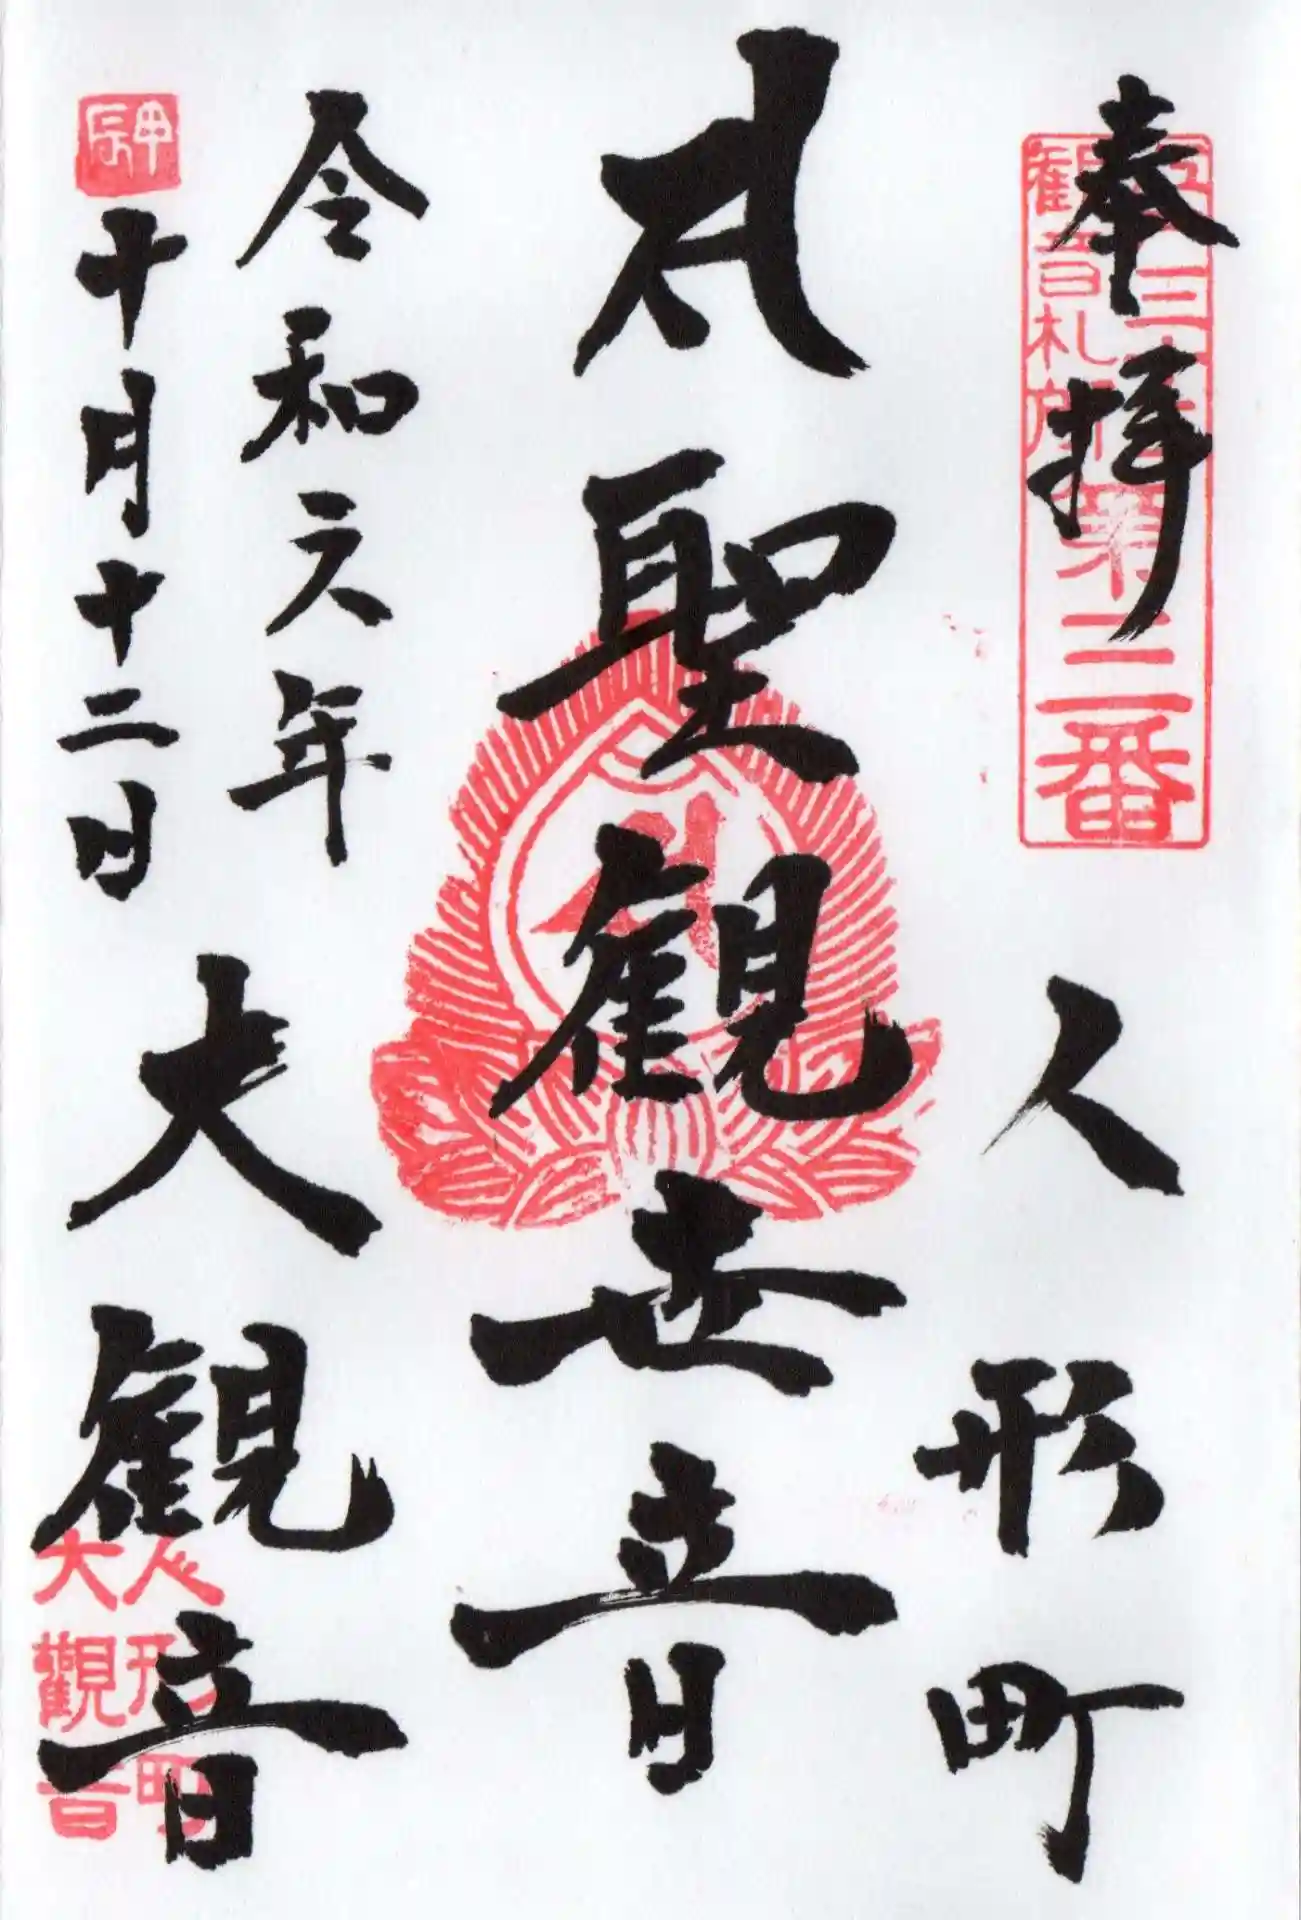 奉拝
観音札所
第三番
人形町
𑖭 聖観世音
令和六年
甲辰
十月十二日
大観音
人形町
大觀音